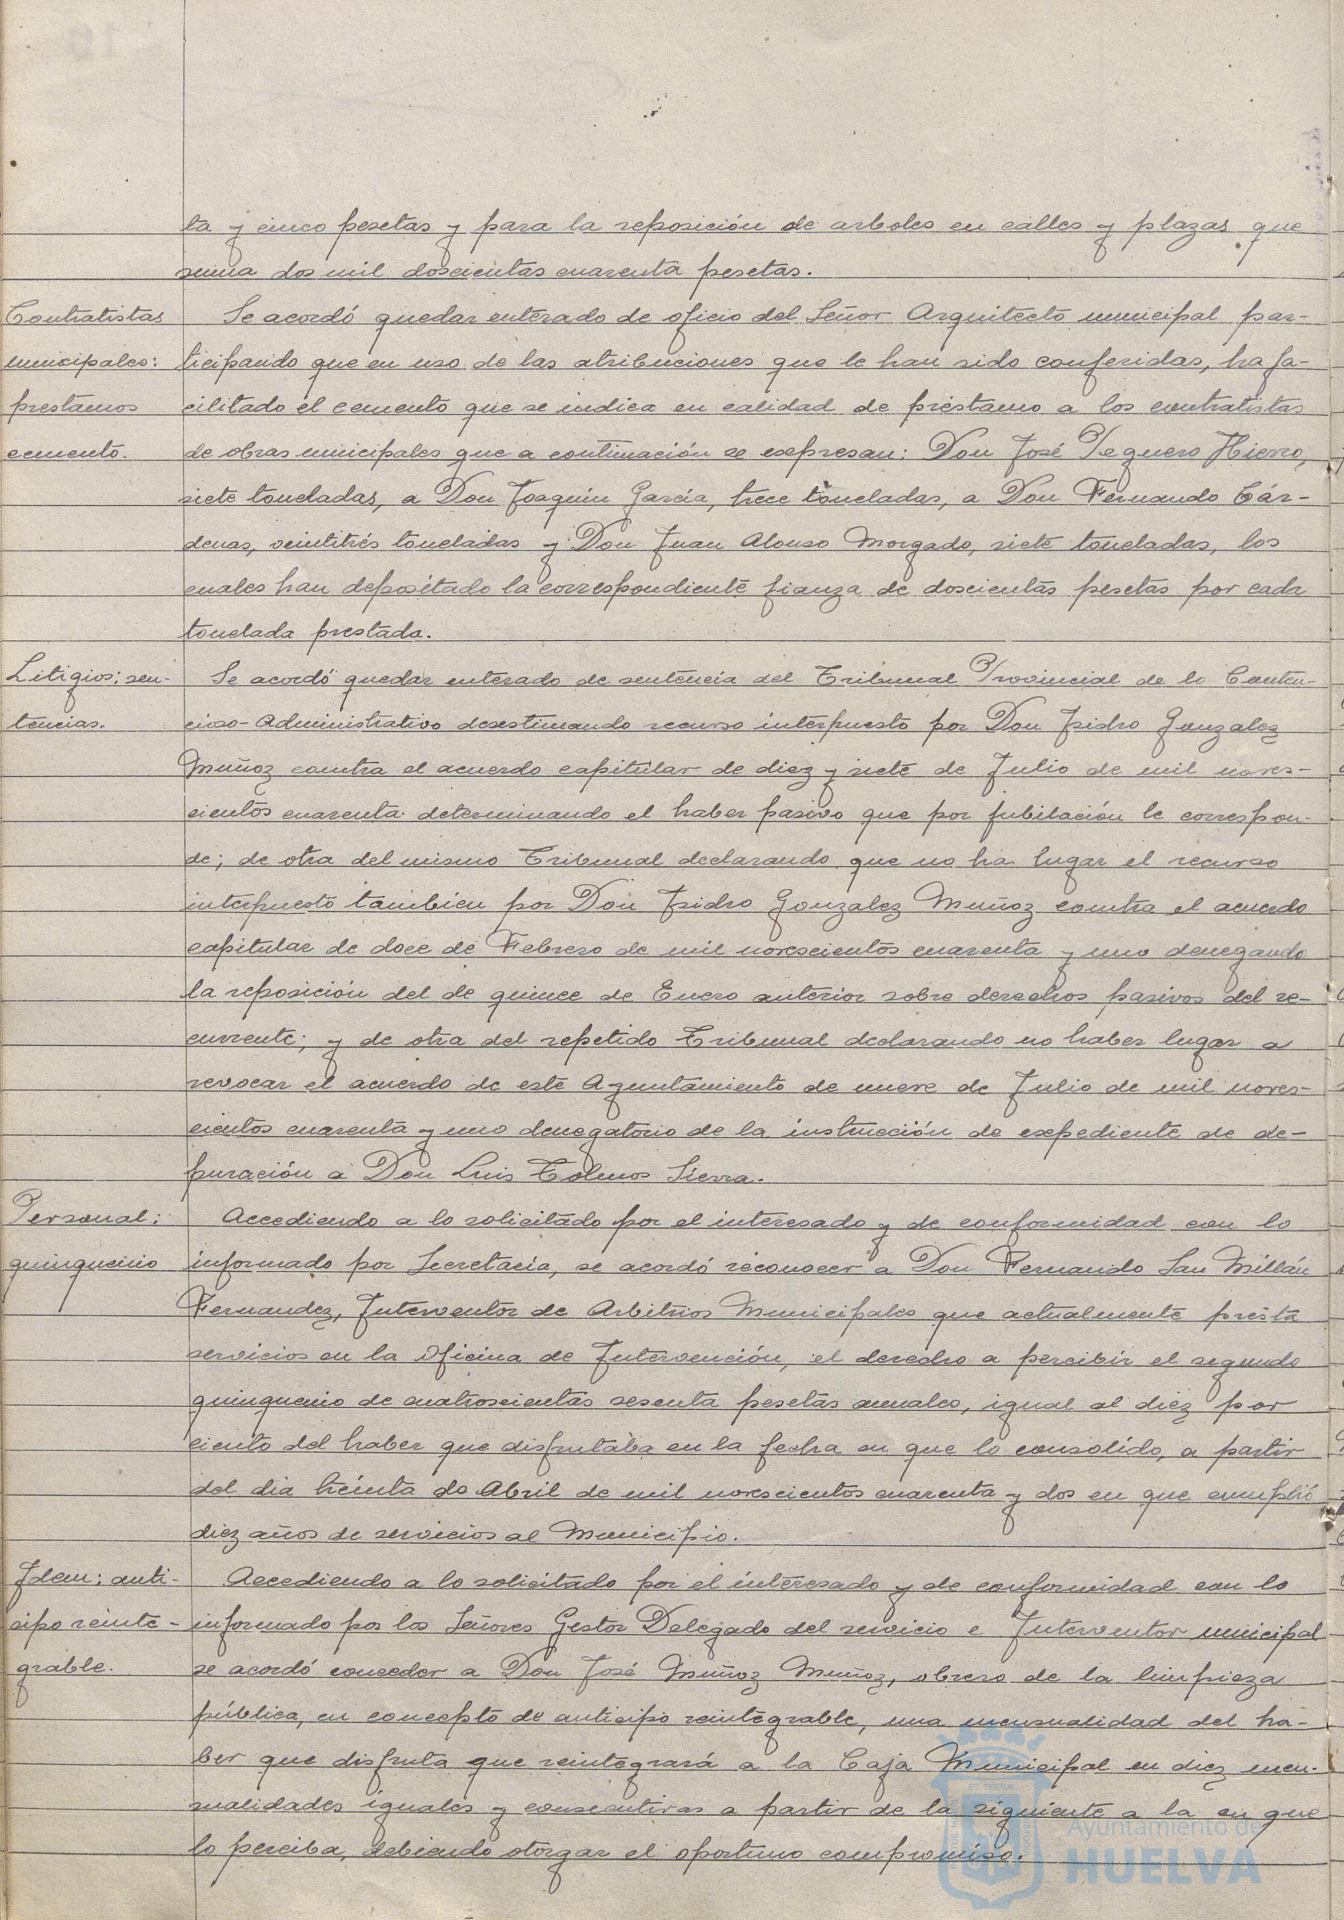 ta y cinco pesetas y para la reposición de arboles en calles y plazas que
suma dos mil doscientas cuarenta pesetas.
Contratistas
municipales:
prestamos
cemento.
Se acordó quedar enterado de oficio del Señor Arquitecto municipal par-
ticipando que en uso de las atribuciones que le han sido conferidas, ha fa-
cilitado el cemento que se indica en calidad de préstamo a los contratistas
de obras municipales que a continuación se expresan: Don José Peguero Hierro,
siete toneladas, a Don Joaquín García, trece toneladas, a Don Fernando Cár-
denas, veintitrés toneladas y Don Juan Alonso Morgado, siete toneladas, los
cuales han depositado la correspondiente fianza de doscientas pesetas por cada
tonelada prestada.
Litigios: sen-
tencias.
Se acordó quedar enterado de sentencia del Tribunal Provincial de lo Conten-
cioso-Administrativo desestimando recurso interpuesto por Don Isidro Gonzalez
Muñoz contra el acuerdo capitular de diez y siete de Julio de mil noves-
cientos cuarenta determinando el haber pasivo que por jubilación le correspon-
de; de otra del mismo Tribunal declarando que no ha lugar el recurso
interpuesto tambien por Don Isidro Gonzalez Muñoz contra el acuerdo
capitular de doce de Febrero de mil novescientos cuarenta y uno denegando
la reposición del de quince de Enero anterior sobre derechos pasivos del re-
currente; y de otra del repetido Tribunal declarando no haber lugar a
revocar el acuerdo de este Ayuntamiento de nueve de Julio de mil noves-
cientos cuarenta y uno denegatorio de la instrucción de expediente de de-
puración a Don Luis Tolmos Sierra.
Personal:
quinquenio
Accediendo a lo solicitado por el interesado y de conformidad con lo
informado por Secretaría, se acordó reconocer a Don Fernando San Millán
Fernandez, Interventor de Arbitrios Municipales que actualmente presta
servicios en la Oficina de Intervención, el derecho a percibir el segundo
quinquenio de cuatroscientas sesenta pesetas anuales, igual al diez por
ciento del haber que disfrutaba en la fecha en que lo consolido, a partir
del dia treinta de Abril de mil novescientos cuarenta y dos en que cumplió
diez años de servicios al Municipio.
Idem: anti-
cipo reinte-
grable.
Accediendo a lo solicitado por el interesado y de conformidad con lo
informado por los Señores Gestor Delegado del servicio e Interventor municipal
se acordó conceder a Don José Muñoz Muñoz, obrero de la limpieza
pública, en concepto de anticipo reintegrable, una mensualidad del ha-
ber que disfruta que reintegrará a la Caja Municipal en diez men-
sualidades iguales y consecutivas a partir de la siguiente a la en que
lo perciba, debiendo otorgar el oportuno compromiso.
Ayuntamiento de
HUELVA